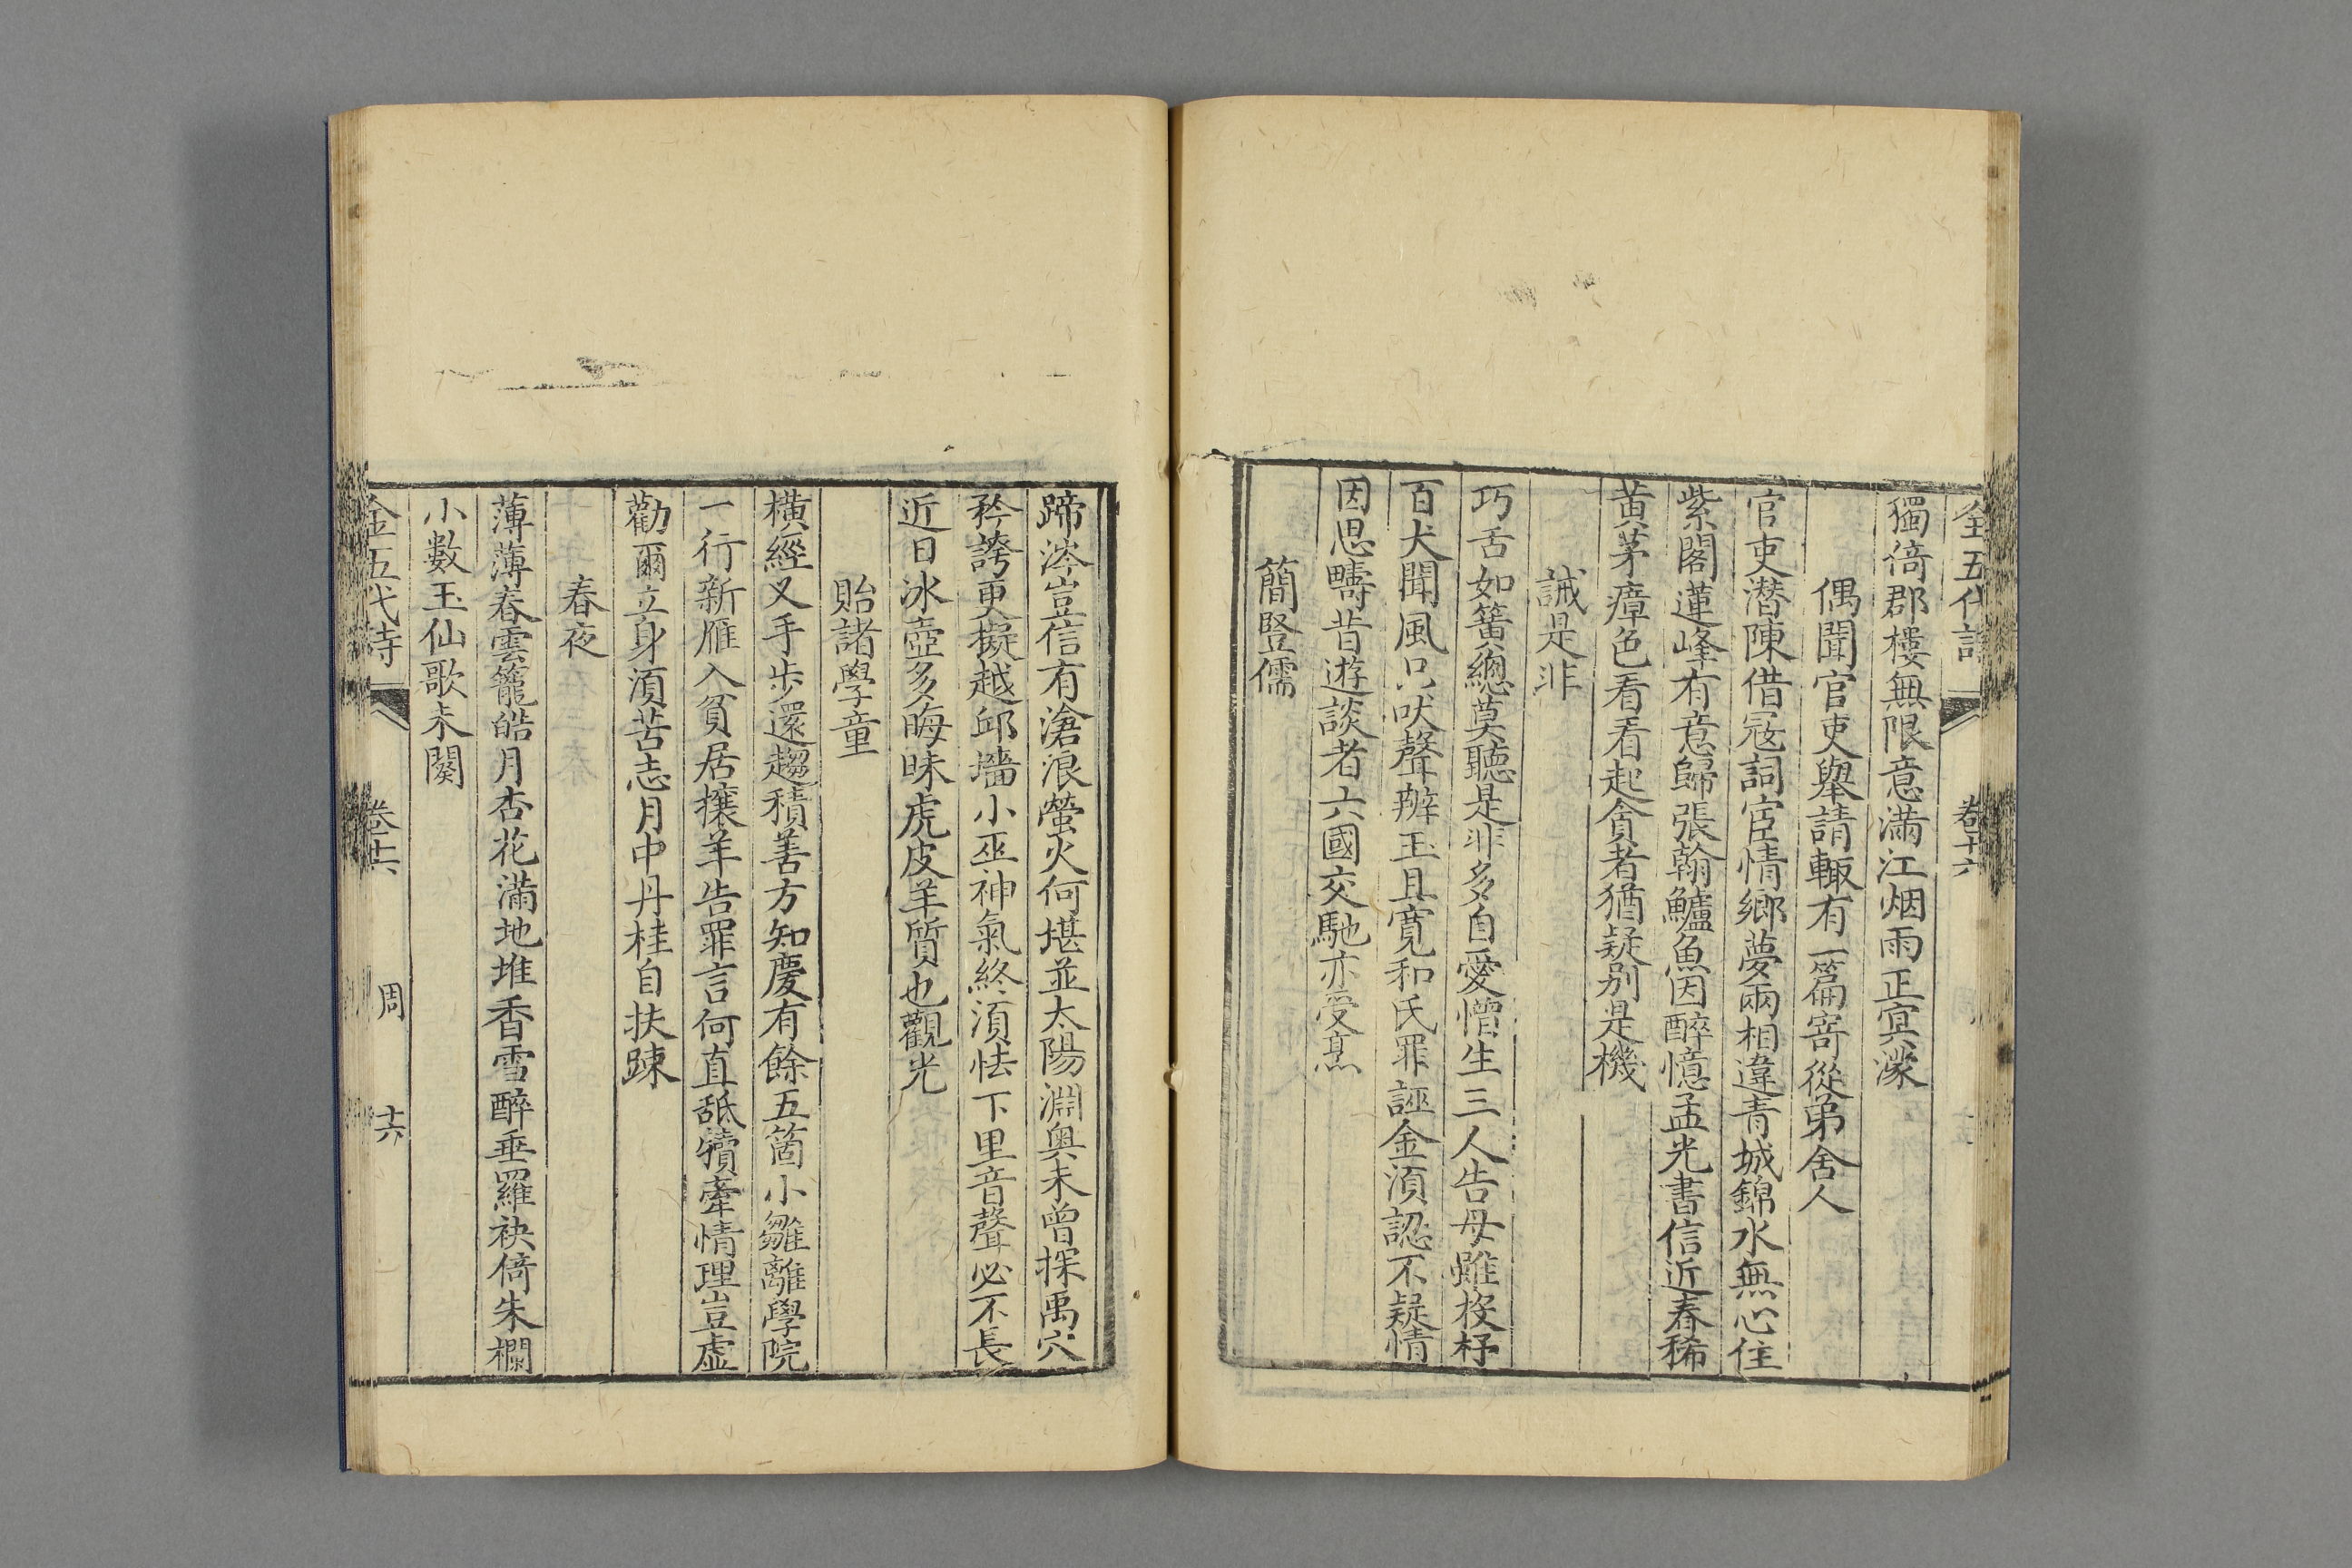 全五代詩 卷十六
獨倚郡樓無限意滿江烟雨正冥濛
偶聞官吏舉請輒有一篇寄從弟舍人
官吏潛陳借寇詞宦情鄉夢兩相違青城錦水無心住
紫閣蓮峰有意歸張翰鱸魚因醉憶孟光書信近春稀
黄茅瘴色看看起貪者猶疑别是機
誡是非
巧舌如簧總莫聽是非多自愛憎生三人告母雖投杼
百犬聞風只吠聲辨玉且寛和氏罪誣金須認不疑情
因思疇昔遊談者六國交馳亦受烹
簡豎儒
蹄涔豈信有滄浪螢火何堪並太陽淵奧未曾探禹穴
矜誇更擬越邱墻小巫神氣終須怯下里音聲必不長
近日冰壺多晦昧虎皮羊質也觀光
貽諸學童
横經叉手步還趨積善方知慶有餘五箇小雛離學院
一行新雁入貧居攘羊告罪言何直舐犢牽情理豈虛
勸爾立身須苦志月中丹桂自扶踈
春夜
薄薄春雲籠皓月杏花滿地堆香雪醉垂羅袂倚朱欄
小數玉仙歌未闋
全五代詩 卷十六 周 十六